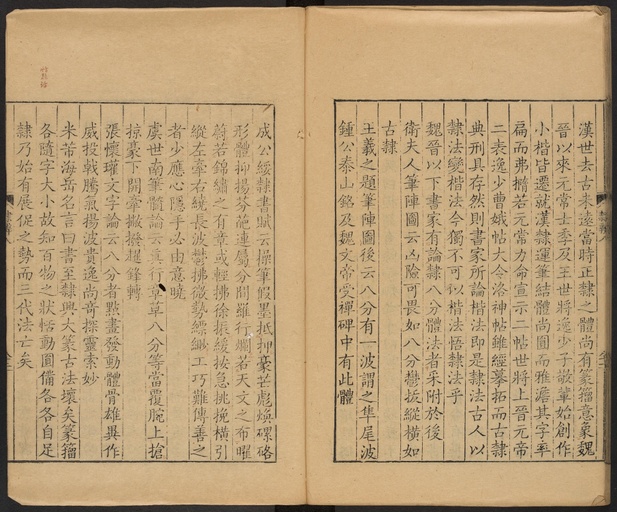 漢世去古未遠當時正隸之體尚有篆籀意象魏
晉以來元常士季及王世將逸少子敬輩始創作
小楷皆遷就漢隸運筆結體尚圓而雅澹其字率
扁而弗橢若元常力命宣示二帖世將上晉元帝
二表逸少曹娥帖大令洛神帖雖經摹拓而古隸
典刑具存然則書家所論楷法即是隸法古人以
隸法變楷法今獨不可以楷法悟隸法乎
魏晉以下書家有論隸八分體法者采附於後
衛夫人筆陣圖云凶險可畏如八分鬱拔縱橫如
古隸
王羲之題筆陣圖後云八分有一波謂之隼尾波
鍾公泰山銘及魏文帝受禪碑中有此體
成公綏隸書賦云操筆假墨抵押豪芒彪煥磥硌
形體抑揚芬葩連屬分間羅行爛若天文之布曜
蔚若錦繡之有章或輕拂徐振緩按急挑挽橫引
縱左牽右繞長波鬱拂微勢縹緲工巧難傳善之
者少應心隱手必由意曉
虞世南筆髓論云真行草草八分等當覆腕上搶
掠豪下開牽撇撥鋒轉
張懷瓘文字論云八分者點畫發動體骨雄異作
威投戟騰氣揚波貴逸尚奇探靈索妙
米芾海岳名言曰書至隸興大篆古法壞矣篆籀
各隨字大小故知百物之狀恬動圓備各各自足
隸乃始有展促之勢而三代法亡矣
隸辨八